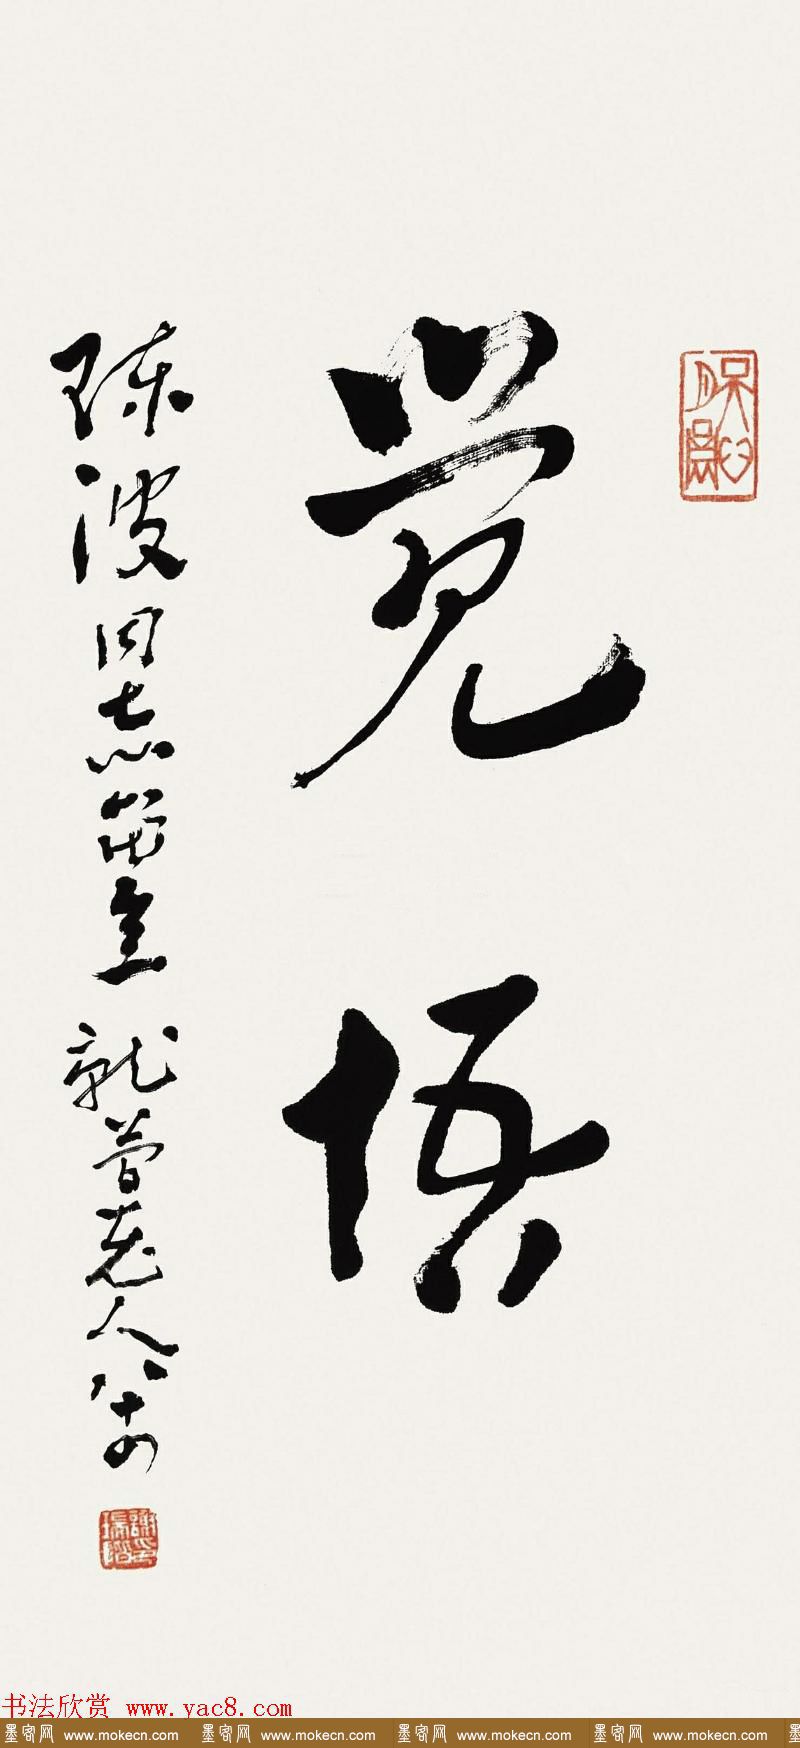 觉悟
陈波同志留念 就曾老人八十四
谢瑞阶印
书法欣赏 www.yac8.com
墨客网 www.mokecn.com 墨客网 www.mokecn.com 墨客网 www.mokecn.com 墨客网 www.mokecn.com